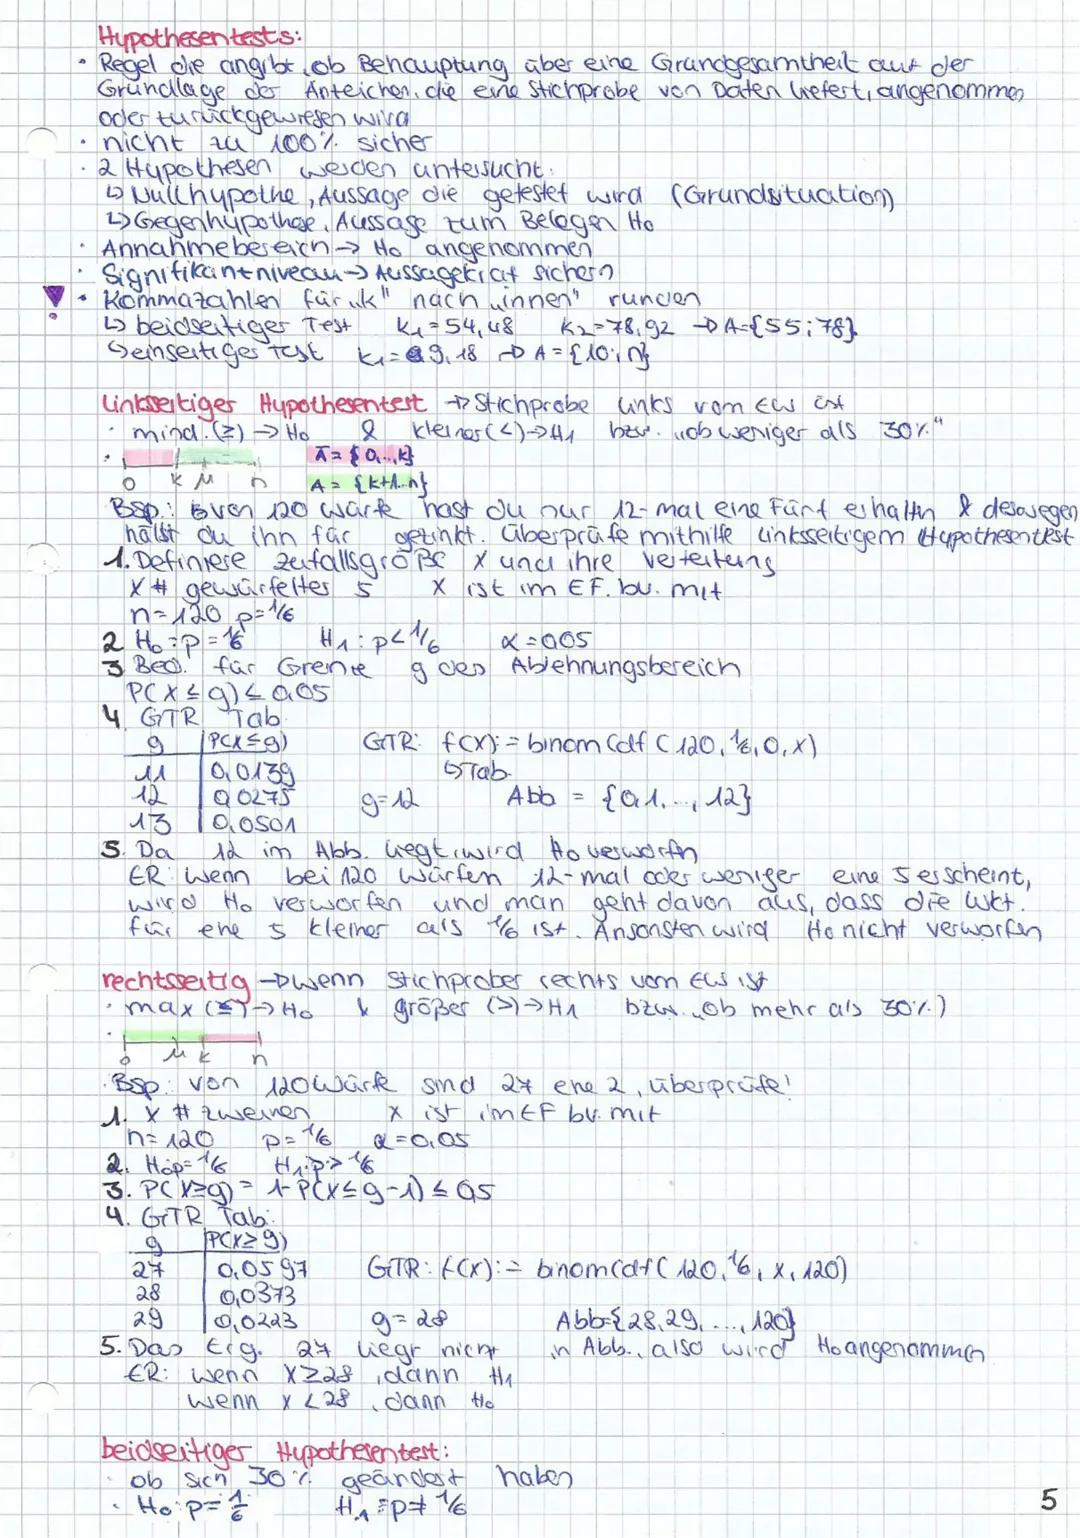 Hypothesentests:
• Regel die angibt, ob Behauptung über eine Grundgesamtheit auf der
Grundlage der Anteichen, die eine Stichprobe von Daten liefert, angenommen
oder zurückgewiesen wird
• nicht zu 100% sicher
• 2 Hypothesen werden untersucht:
↳ Nullhypothe, Aussage die getestet wird (Grundsituation)
↳ Gegenhypothese, Aussage zum Belegen H₀
• Annahmebereich → H₀ angenommen
• Signifikantniveau → Aussagekraft sichern
! • Kommazahlen für „k" nach „innen" runden
↳ beidseitiger Test k₁=54,48 k₂=78,92 → A={55;78}
↳ einseitiges Test k₁=9,18 → A={10;n}
linksseitiger Hypothesentest → Stichprobe links vom EW ist
• mind. (≥) → H₀ & kleiner (<) → H₁ bzw. „ob weniger als 30%"
• Ā = {0,..,k}
0 k μ n A = {k+1..n}
Bsp.: von 120 Würfe hast du nur 12-mal eine Fünf erhaltn & deswegen
hälst du ihn für gezinkt. Überprüfe mithilfe linksseitigem Hypothesentest
1. Definiere Zufallsgröße X und ihre Verteilung
X # gewürfeltes 5 X ist im EF. bv. mit
n=120 p=1/6
2 H₀:p=1/6 H₁: p<1/6 α=0,05
3 Bed. für Grenze g des Ablehnungsbereich
P(X≤g)≤0,05
4. GTR Tab.
g P(X≤g) GTR: f(x):= binomCdf(120,1/6,0,x)
11 0,0139 ↳Tab.
12 0,0275 g=12 Abb = {0,1,...,12}
13 0,0501
5. Da 12 im Abb. liegt, wird H₀ verworfn
ER: Wenn bei 120 Würfen 12-mal oder weniger eine 5 erscheint,
wird H₀ verworfen und man geht davon aus, dass die Wkt.
für ene 5 kleiner als 1/6 ist. Ansonsten wird H₀ nicht verworfen
rechtsseitig → wenn Stichprober rechts vom EW ist
• max (≤) → H₀ & größer (>) → H₁ bzw. „ob mehr als 30%)
•
0 μ k n
• Bsp.: von 120 Würfe sind 27 ene 2, überprüfe!
1. X # zweien X ist im EF bv. mit
n=120 p=1/6 α=0,05
2. H₀:p=1/6 H₁:p>1/6
3. P(X≥g) = 1-P(X≤g-1) ≤ 0,5
4. GTR Tab:
g P(X≥g)
27 0,0597 GTR: f(x):= binomcdf(120,1/6,x,120)
28 0,0373
29 0,0223 g=28 Abb={28,29,...,120}
5. Das Erg. 27 liegt nicht in Abb., also wird H₀ angenommen
ER: wenn X≥28, dann H₁
wenn X<28, dann H₀
beidseitiger Hypothesentest:
• ob sich 30% geändert haben
• H₀:p=1/6 H₁:p≠1/6
5